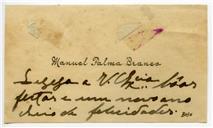 Manuel Palma Branco
Deseja a V. Excia bôas
festas e um novo ano
cheio de felicidades.